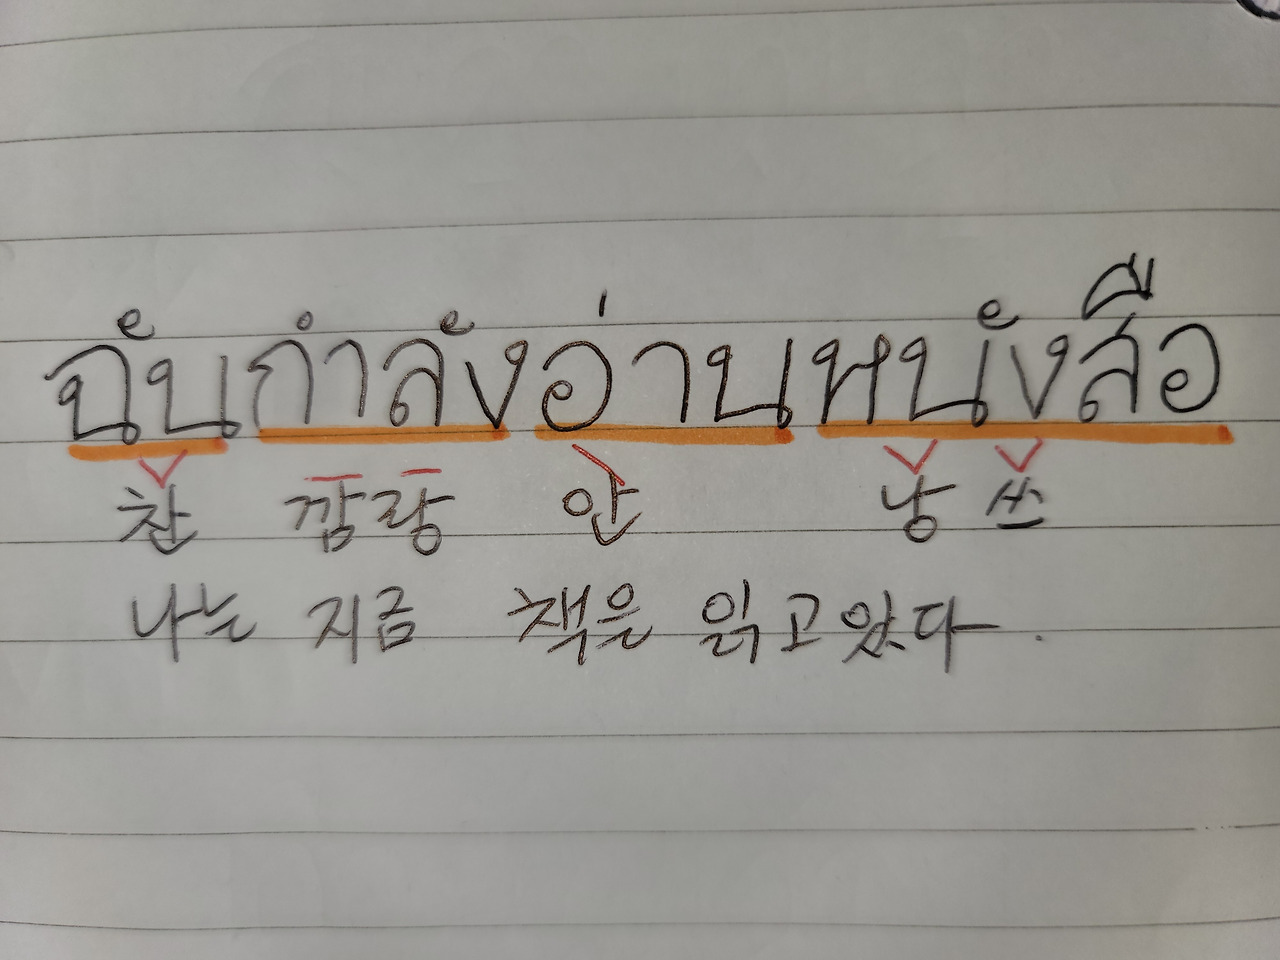 ฉันกำลังอ่านหนังสือ
찬 깜랑 안 낭쓰
나는 지금 책을 읽고있다.